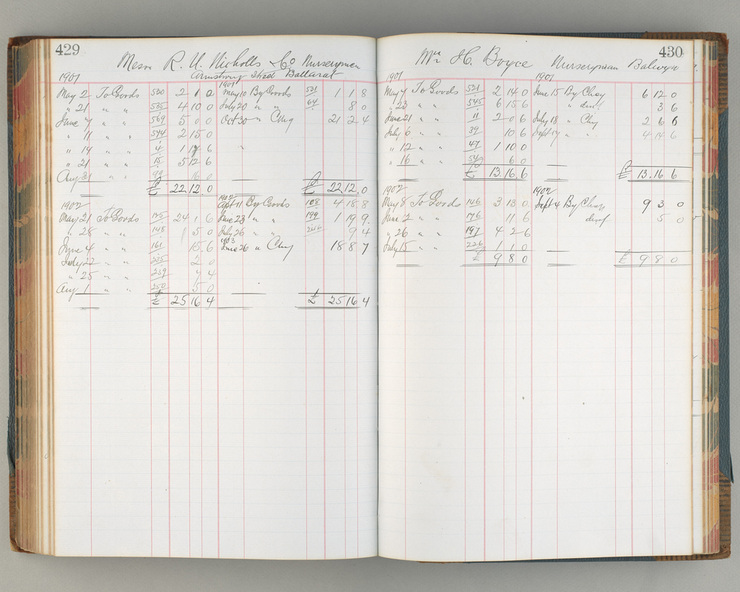 429
Messrs R. U. Nicholls & Co Nurserymen
Armstrong Street Ballarat
1901 1901
May 2 To Goods 520 2 1 0 May 10 By Goods 521 1 1 8
" 21 " " 535 4 10 0 July 20 " " 64 8 0
June 7 " " 569 5 0 0 Oct 30 " Chq 21 2 4
" 11 " " 574 2 15 0
" 14 " " 4 1 17 6
" 21 " " 15 5 12 6
Aug 21 " " 16 0
£ 22 12 0 £ 22 12 0
1902 1902
May 21 To Goods 24 1 6 Sept 11 By Goods 108 4 18 8
" 28 " " 148 1 5 0 June 23 " " 199 1 19 9
June 4 " " 161 15 6 July 26 " " 9 4
July 22 " " 2 0 1903 June 26 " Chq 18 8 7
" 25 " " 239 7 4
Aug 1 " " 250 5 0
£ 25 16 4 £ 25 16 4
430
Mr H. Boyce Nurseryman Balwyn
1901 1901
May 7 To Goods 521 2 14 0 June 15 By Chq 6 12 0
" 23 " " 545 6 15 6 " disct 3 6
June 21 " " 11 2 0 6 July 18 " Chq 2 6 6
July 6 " " 39 10 6 Sept 17 " " 4 14 6
" 12 " " 47 1 10 0
" 16 " " 6 0
£ 13 16 6 £ 13 16 6
1902 1902
May 8 To Goods 126 3 13 0 Sept 4 By Chq 9 3 0
June 2 " " 176 11 6 disct 5 0
" 26 " " 197 4 2 6
July 15 " " 226 1 1 0
£ 9 8 0 £ 9 8 0